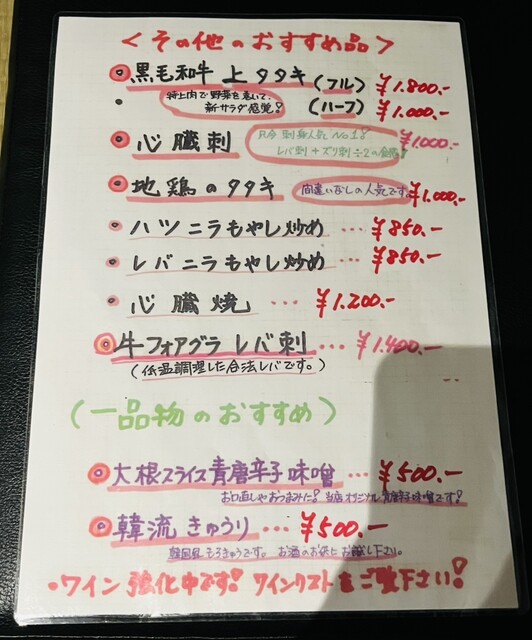 ＜その他のおすすめ品＞
黒毛和牛 上タタキ（フル）￥1.800.-
特上肉で野菜を巻いて、
新サラダ感覚！（ハーフ）￥1.000.-
心臓刺 ￥1.000.-
刺 人気 No1!!
レバ刺＋ズリ刺÷2の
地鶏のタタキ 間違いなしの人気です ￥1.000.-
ハツニラもやし炒め … ￥850.-
レバニラもやし炒め … ￥850.-
心臓焼 … ￥1.200.-
牛フォアグラレバ刺 … ￥1.400.-
（低温調理した合法レバです。）
（一品物のおすすめ）
大根スライス青唐辛子味噌 … ￥500.-
お口直しやおつまみに！当店オリジナル青唐辛子味噌です！
韓流きゅうり … ￥500.-
韓国風もろきゅうです。お酒のお供にお試し下さい。
・ワイン強化中です！ワインリストをご覧下さい！